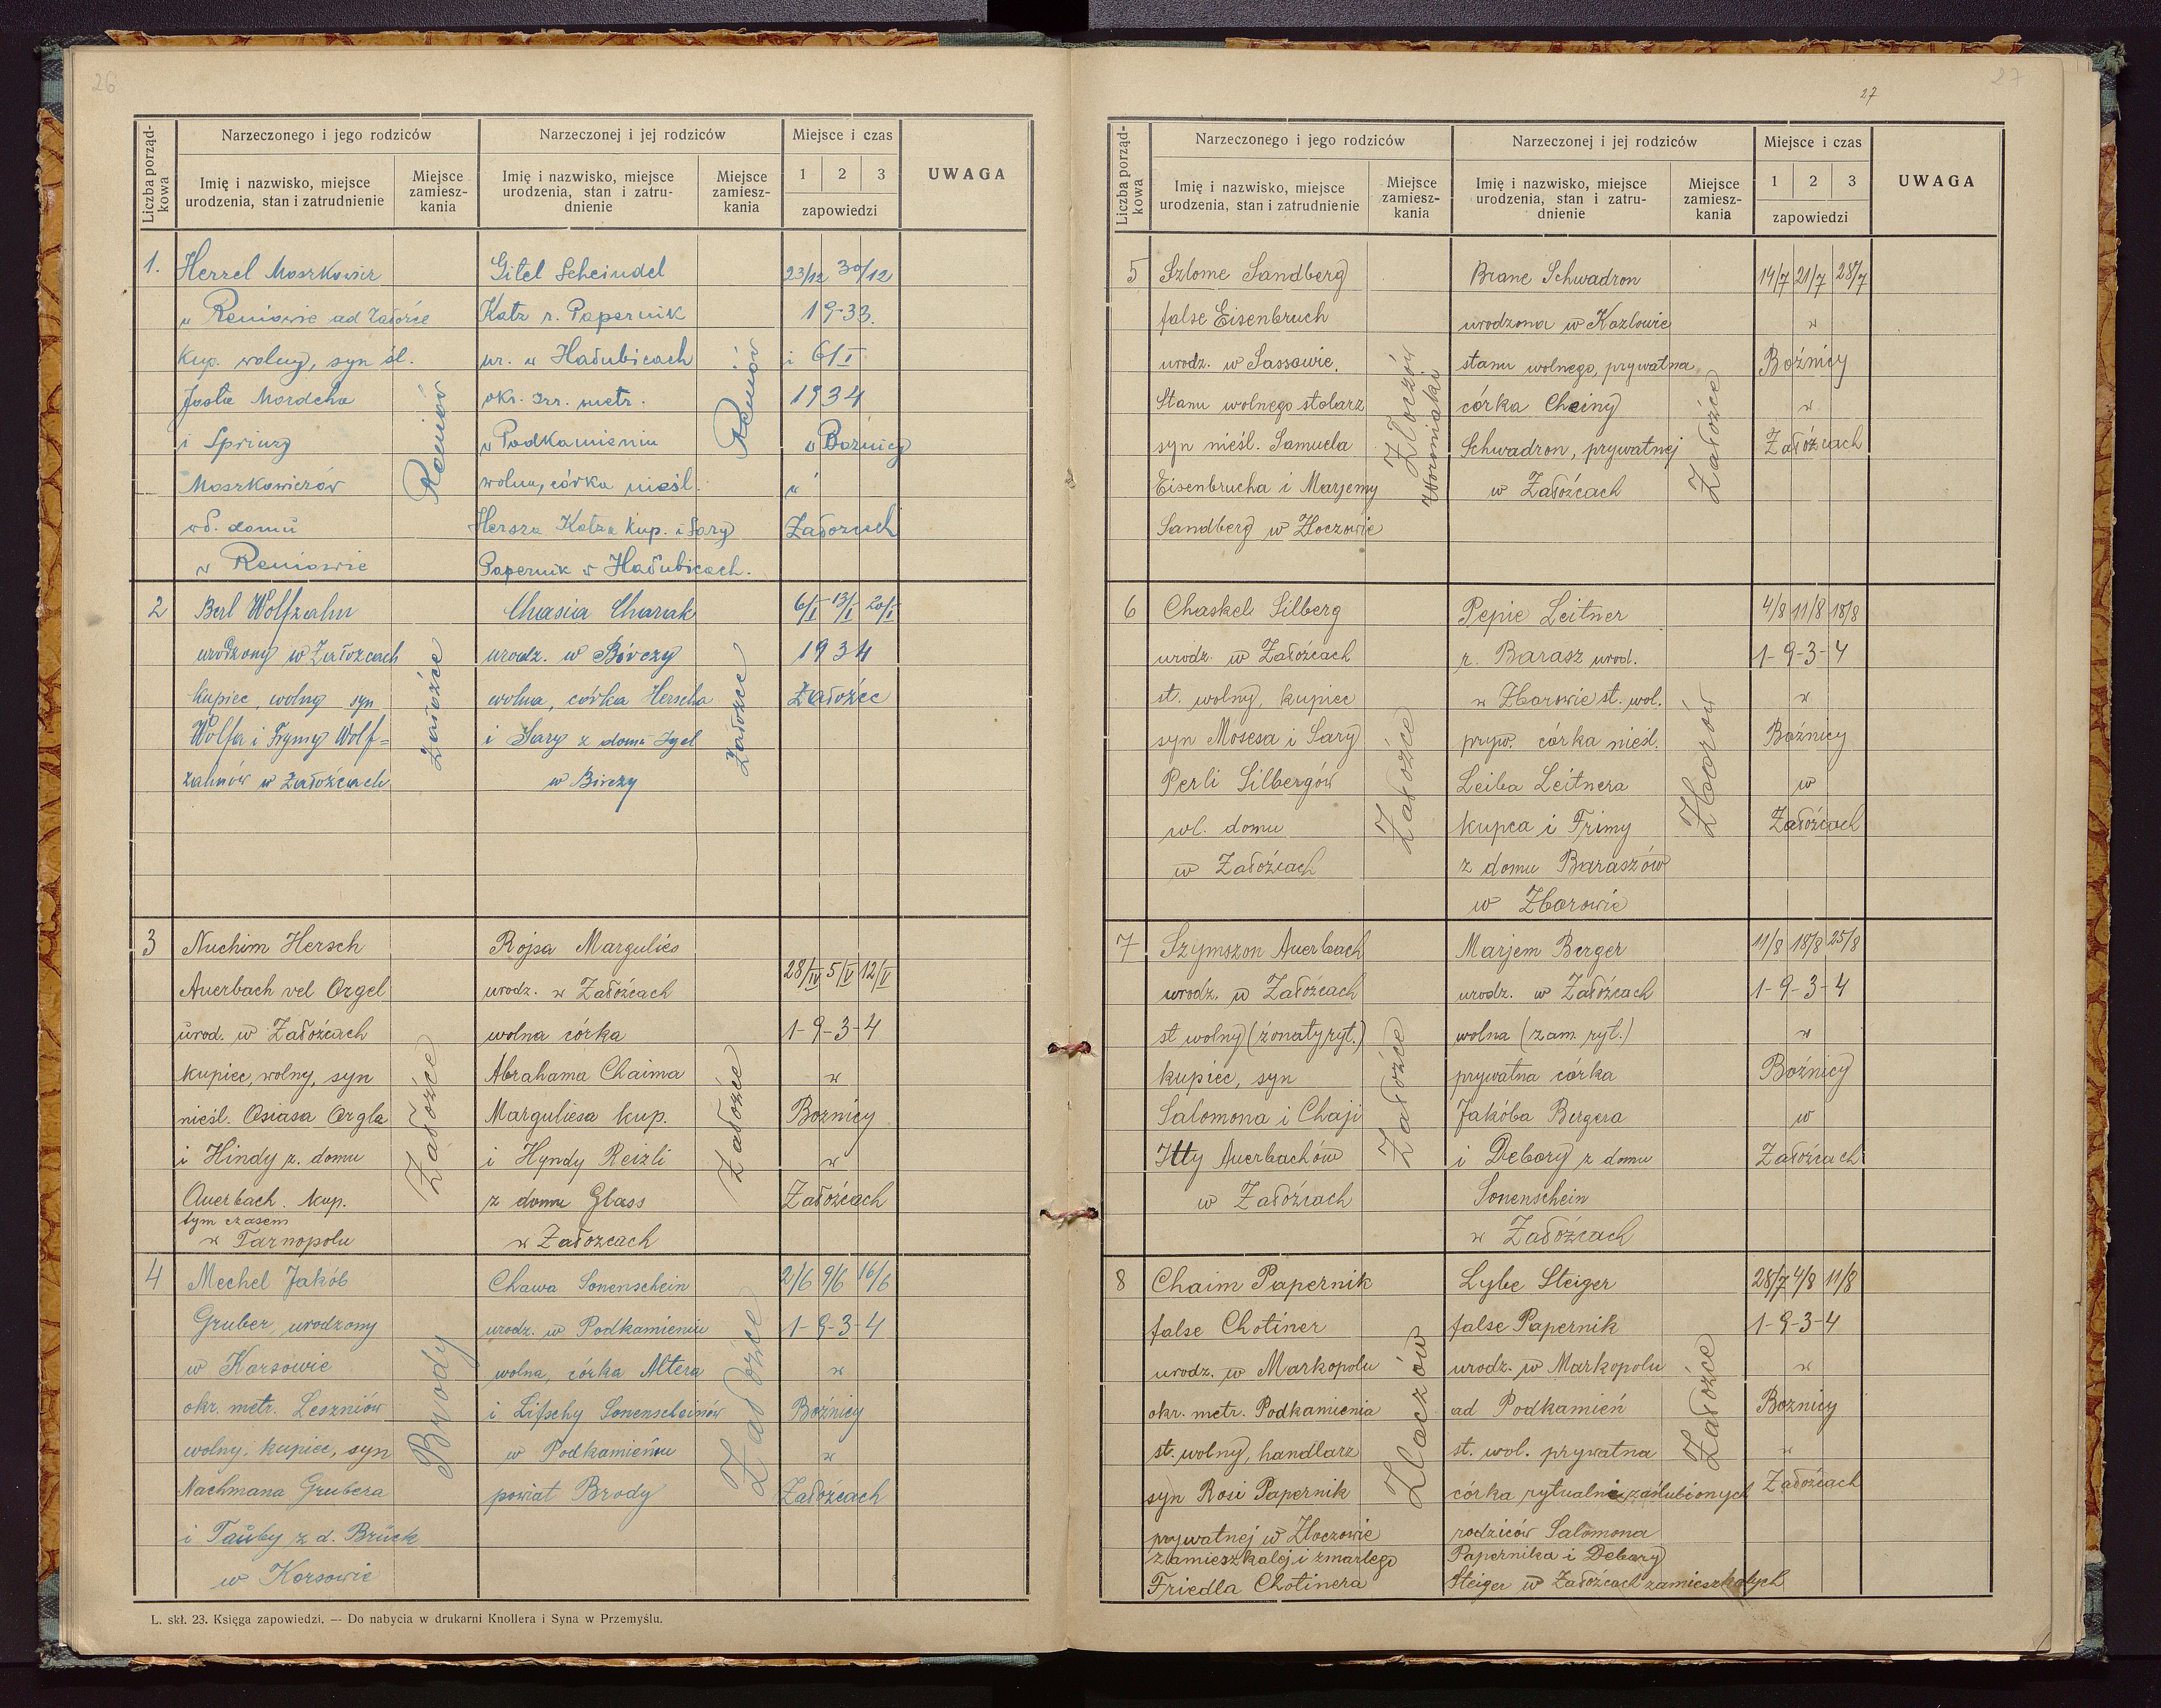 26
Liczba porząd-
kowa
Narzeczonego i jego rodziców
Narzeczonej i jej rodziców
Miejsce i czas
UWAGA
Imię i nazwisko, miejsce
urodzenia, stan i zatrudnienie
Miejsce
zamiesz-
kania
Imię i nazwisko, miejsce
urodzenia, stan i zatru-
dnienie
Miejsce
zamiesz-
kania
1 2 3
zapowiedzi
1.
Herzel Moszkowicz
w Reniowie ad Załoźce
kup. wolny, syn śl.
Josla Mordcha
i Sprincy
Moszkowiczów
wł. domu
w Reniowie
Reniów
Gitel Scheindel
Katz r. Papernik
ur. w Hałubicach
okr. izr. metr.
w Podkamieniu
wolna, córka nieśl.
Hersza Katza kup. i Sary
Papernik w Hałubicach.
Reniów
23/12 30/12
19-33.
i 6/I
1934
w Bożnicy
w
Załozcach
2
Berl Wolfzahn
urodzony w Załozcach
kupiec, wolny syn
Wolfa i Frymy Wolf=
zahnów w Załoźcach
Załoźce
Chasia Charak
urodz. w Birczy
wolna, córka Herscha
i Sary z domu Igel
w Birczy
Załoźce
6/I 13/I 20/I
1934
Załoźce
3
Nuchim Hersch
Auerbach vel Orgel
urod. w Załoźcach
kupiec, wolny, syn
nieśl. Osiasa Orgla
i Hindy z. domu
Auerbach. kup.
tym czasem
w Tarnopolu
Załoźce
Rojsa Margulies
urodz. w Załoźcach
wolna córka
Abrahama Chaima
Marguliesa kup.
i Hyndy Reizli
z domu Glass
w Załozcach
Załoźce
28/IV 5/V 12/V
1-9-3-4
w
Boznicy
w
Załoźcach
4
Mechel Jakób
Gruber, urodzony
w Korsowie
okr. metr. Leszniów
wolny, kupiec, syn
Nachmana Grubera
i Tauby z d. Brück
w Korsowie
Brody
Chawa Sonenschein
urodz. w Podkamieniu
wolna, córka Altera
i Lifschy Sonenscheinów
w Podkamieniu
powiat Brody
Załoźce
2/6 9/6 16/6
1-9-3-4
w
Bożnicy
w
Załoźcach
L. skł. 23. Księga zapowiedzi. — Do nabycia w drukarni Knollera i Syna w Przemyślu.
27
27
Liczba porząd-
kowa
Narzeczonego i jego rodziców
Narzeczonej i jej rodziców
Miejsce i czas
UWAGA
Imię i nazwisko, miejsce
urodzenia, stan i zatrudnienie
Miejsce
zamiesz-
kania
Imię i nazwisko, miejsce
urodzenia, stan i zatru-
dnienie
Miejsce
zamiesz-
kania
1 2 3
zapowiedzi
5
Szlome Sandberg
false Eisenbruch
urodz. w Sassowie.
Stanu wolnego stolarz
syn nieśl. Samuela
Eisenbrucha i Marjemy
Sandberg w Złoczowie
Złoczów
Woroniaki
Brane Schwadron
urodzona w Kozlowie
stanu wolnego, prywatna
córka Cheiny
Schwadron, prywatnej
w Załoźcach
Załoźce
14/7 21/7 28/7
w
Bożnicy
w
Załoźcach
6
Chaskel Silberg
urodz. w Załoźcach
st. wolny, kupiec
syn Mosesa i Sary
Perli Silbergów
wł. domu
w Załoźcach
Załoźce
Pepie Leitner
r. Barasz urod.
w Zborowie st. wol.
pryw. córka nieśl.
Leiba Leitnera
kupca i Frimy
z domu Baraszów
w Zborowie
Zborów
4/8 11/8 18/8
1-9-3-4
w
Bożnicy
w
Załoźcach
7
Szymszon Auerbach
urodz. w Załoźcach
st wolny (żonaty ryt.)
kupiec, syn
Salomona i Chaji
Itty Auerbachów
w Załoźcach
Załoźce
Marjem Berger
urodz. w Załoźcach
wolna (zam. ryt.)
prywatna córka
Jakóba Bergera
i Debory z domu
Sonenschein
w Załoźcach
11/8 18/8 25/8
1-9-3-4
w
Bożnicy
w
Załoźcach
8
Chaim Papernik
false Chotiner
urodz. w Markopolu
okr. metr. Podkamienia
st. wolny, handlarz
syn Rosi Papernik
prywatnej w Złoczowie
zamieszkałej i zmarlego
Friedla Chotinera
Zloczów
Lybe Steiger
false Papernik
urodz. w Markopolu
ad Podkamień
st. wol. prywatna
córka rytualnie zaślubionych
rodziców Salomona
Papernika i Debory
Steiger w Załoźcach zamieszkałych
Załoźce
28/7 4/8 11/8
1-9-3-4
w
Boznicy
w
Załoźcach